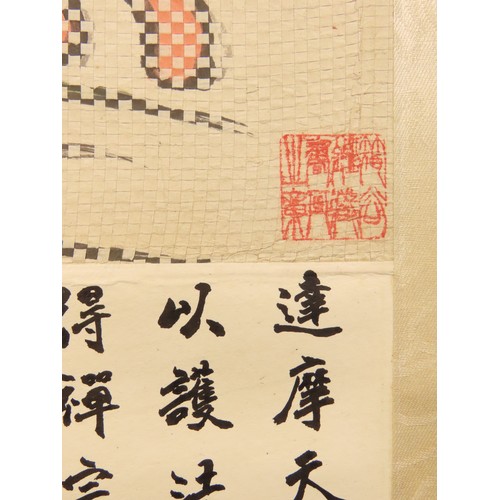 達摩天
以護法
得禪宗